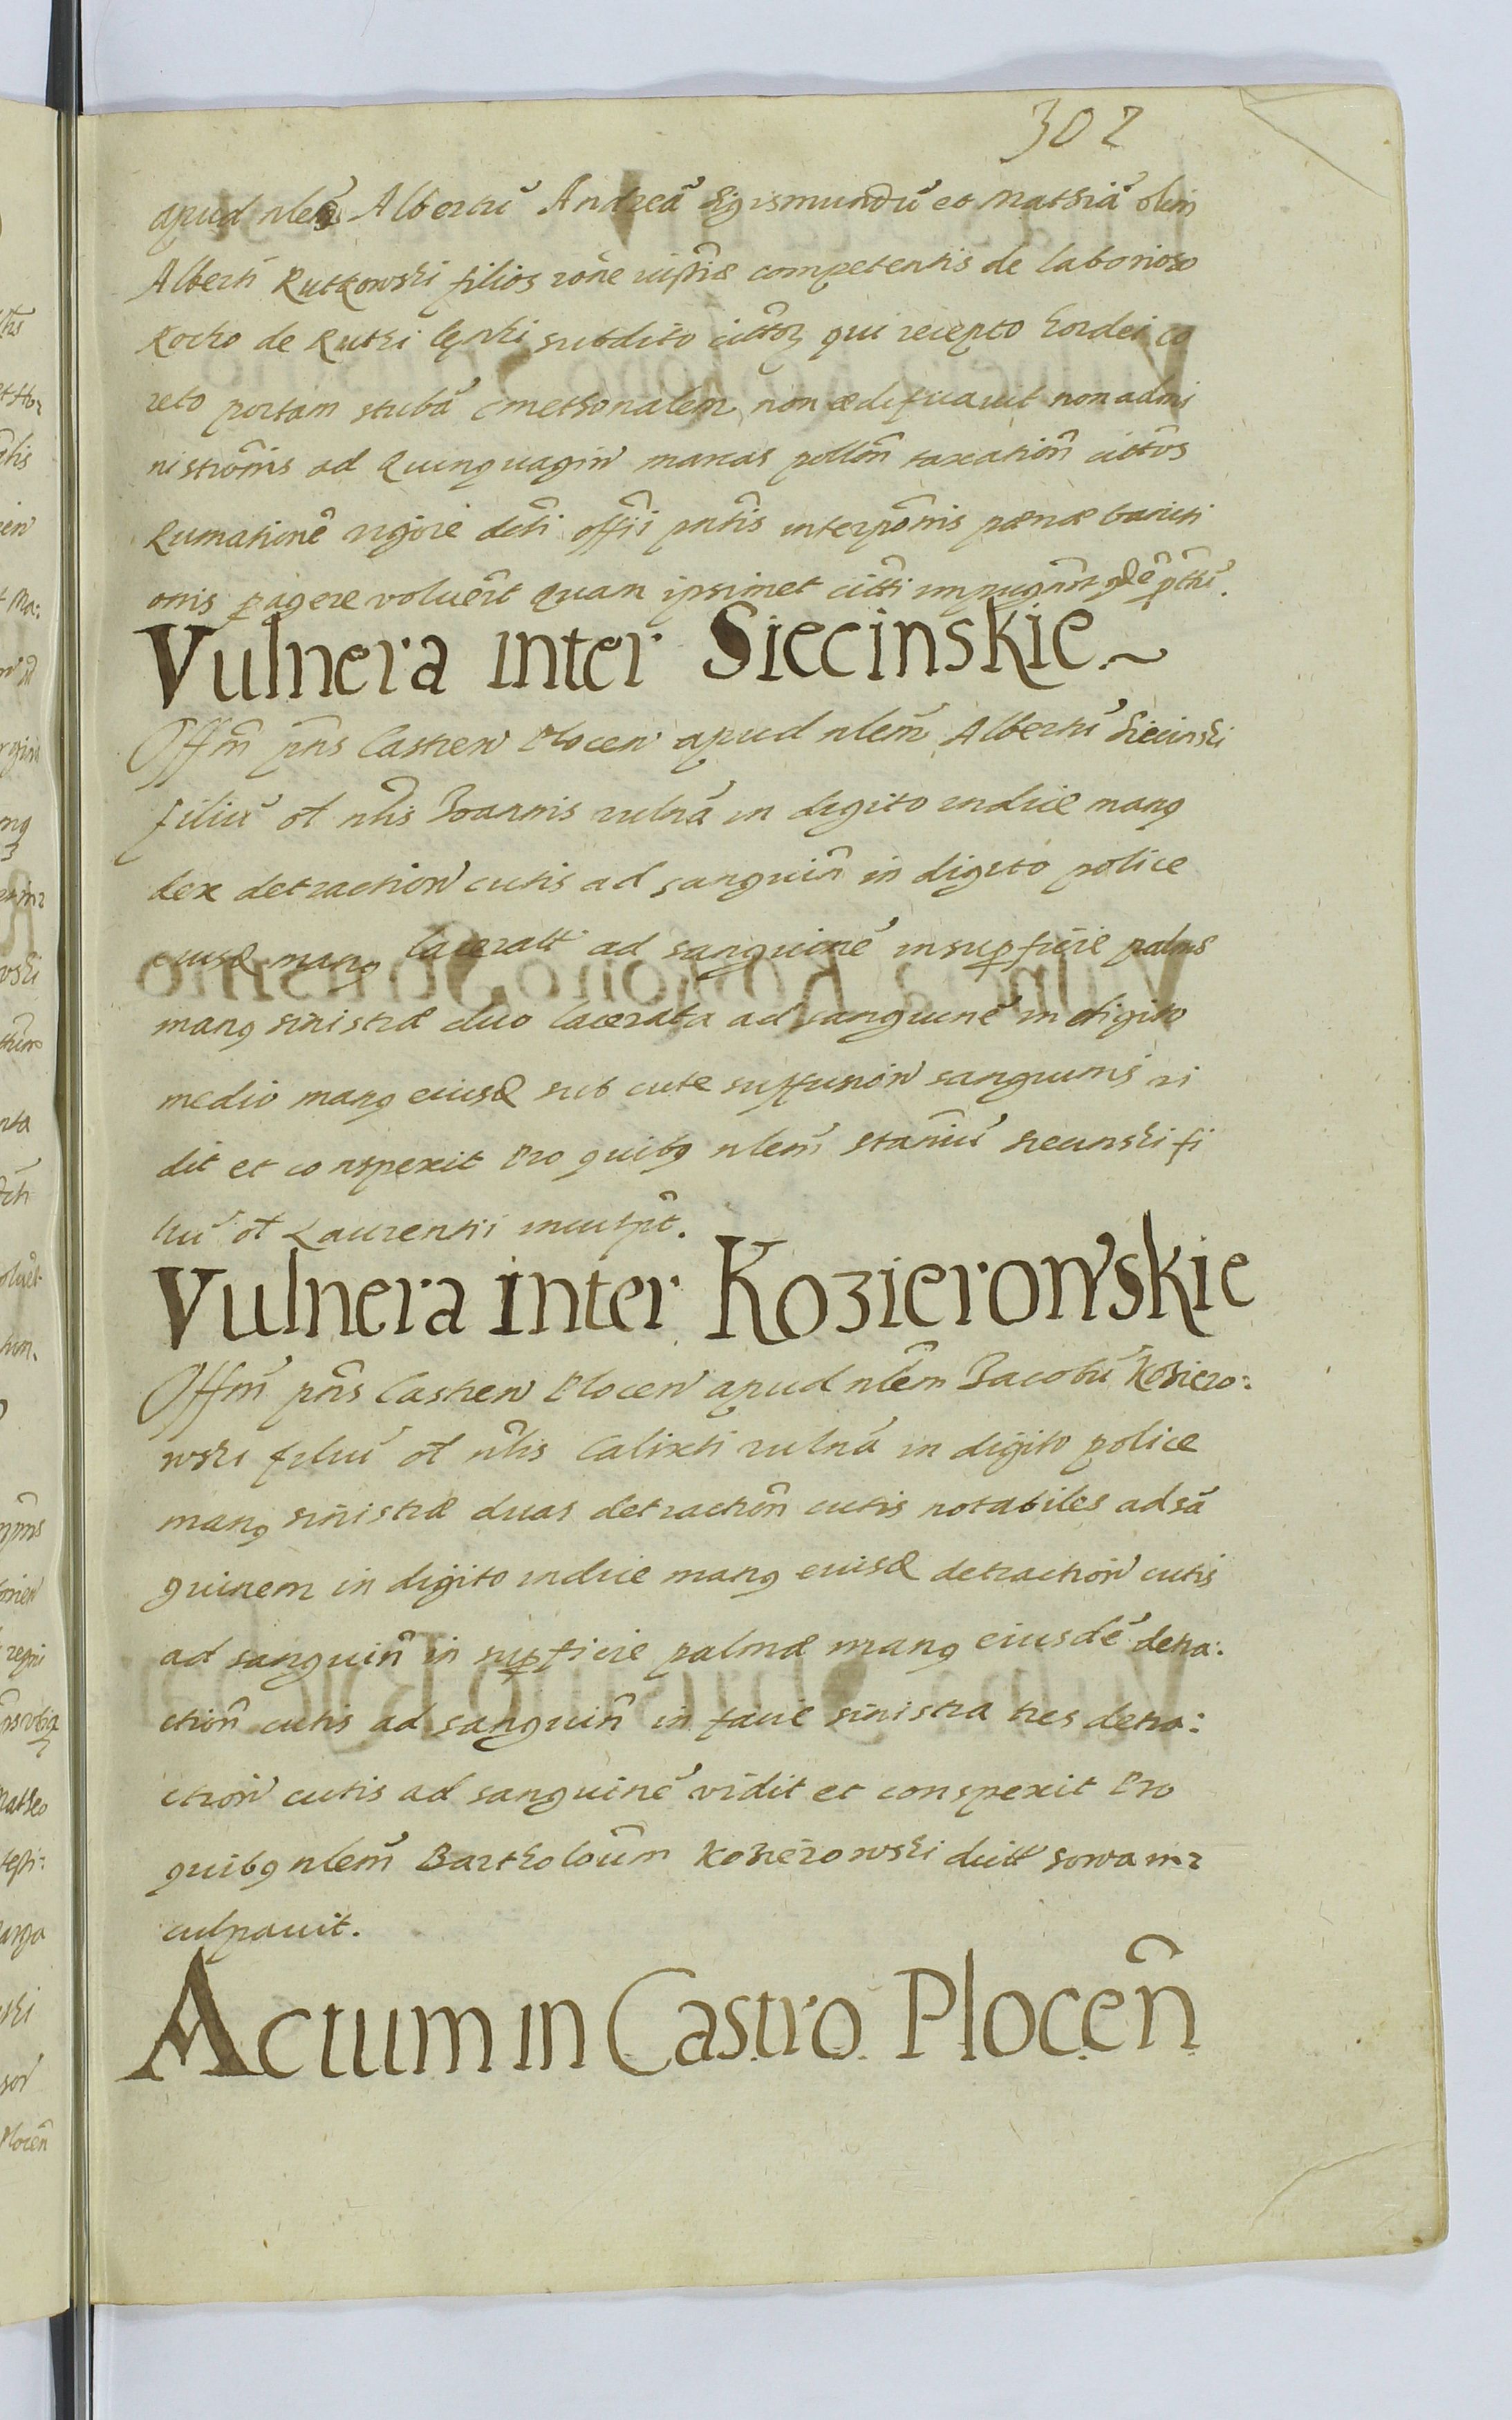 302
apud nlem̃ Albertũ Andreã Sigismundũ et Mathiã olim
Alberti Rutkowski filios rõne iustitiæ competentis de laborioso
Rocho de Rutki subdito qui recepto hordei co
reto portam stubã cmethonalem non ædificavit non admi
nistrõnis ad Quinquagin̄ marcas pollõn taxation̄
Rumationẽ vigore offii pn̄tis interpõnis pœnæ banniti
onis pagere voluer̃t quam ipsimet
Vulnera inter Siecinskie
Offm̃ pñs Castren Plocen apud nlem̃ Albertũ Siecinski
filiũ ol nlĩs Joannis vulnã in digito indice manꝯ
dex detraction̄ cutis ad sanguin̄ in digito police
eiusd manꝯ lacerat ad sanguinẽ in supficie palms
manꝯ sinistræ duo lacerata ad sanguinẽ in digito
medio manꝯ eiusd sub cute suffusion̄ sanguinis vi
dit et conspexit Pro quibꝯ nlem̃ Stanisũ Siecinski fi
liũ ol Laurentii inculpt̃.
Vulnera inter Kozierowskie
Offm̃ pñs Castren Plocen apud nlem̃ Jacobũ Koziero:
wski filiũ ol nlĩs Calixti vulnã in digito police
manꝯ sinistræ duas detraction̄ cutis notabiles ad sã
guinem in digito indice manꝯ eiusd detraction̄ cutis
ad sanguin̄ in supficie palmæ manꝯ eiusdẽ detra:
ction̄ cutis ad sanguin̄ in facie sinistra tres detra:
ction̄ cutis ad sanguinẽ vidit et conspexit Pro
quibꝯ nlem̃ Bartholoũm Kozierowski dictt sowa in
culpavit.
Actum in Castro Plocen̄